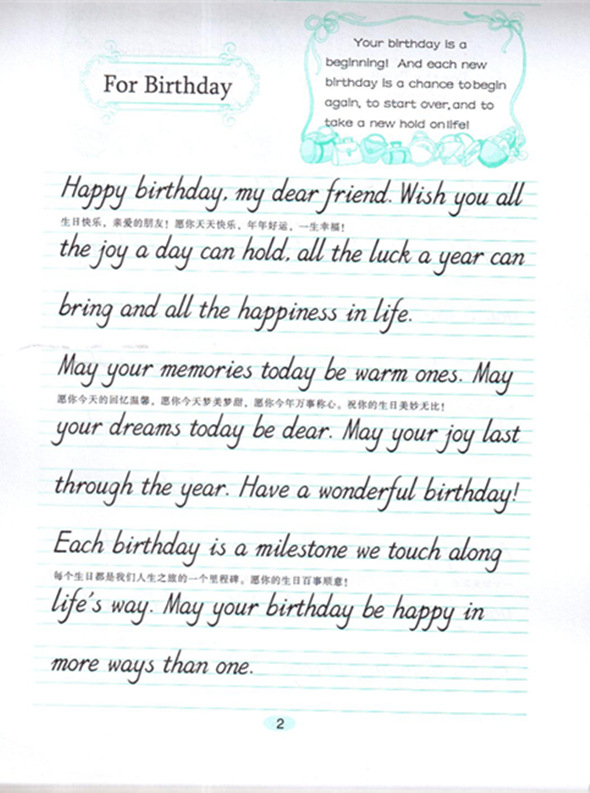 For Birthday
Your birthday is a
beginning! And each new
birthday is a chance to begin
again, to start over, and to
take a new hold on life!
Happy birthday, my dear friend. Wish you all
生日快乐，亲爱的朋友！愿你天天快乐，年年好运，一生幸福！
the joy a day can hold, all the luck a year can
bring and all the happiness in life.
May your memories today be warm ones. May
愿你今天的回忆温馨，愿你今天梦美梦甜，愿你今年万事称心。祝你的生日美妙无比！
your dreams today be dear. May your joy last
through the year. Have a wonderful birthday!
Each birthday is a milestone we touch along
每个生日都是我们人生之旅的一个里程碑。愿你的生日百事顺意！
life's way. May your birthday be happy in
more ways than one.
2